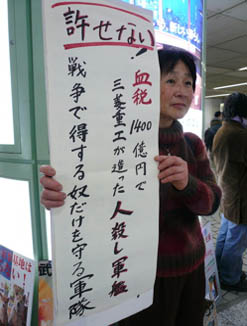 許せない!
血税
1400億円で
三菱重工が造った
人殺し軍艦
戦争で得する奴だけを守る軍隊
基地は
い!
武